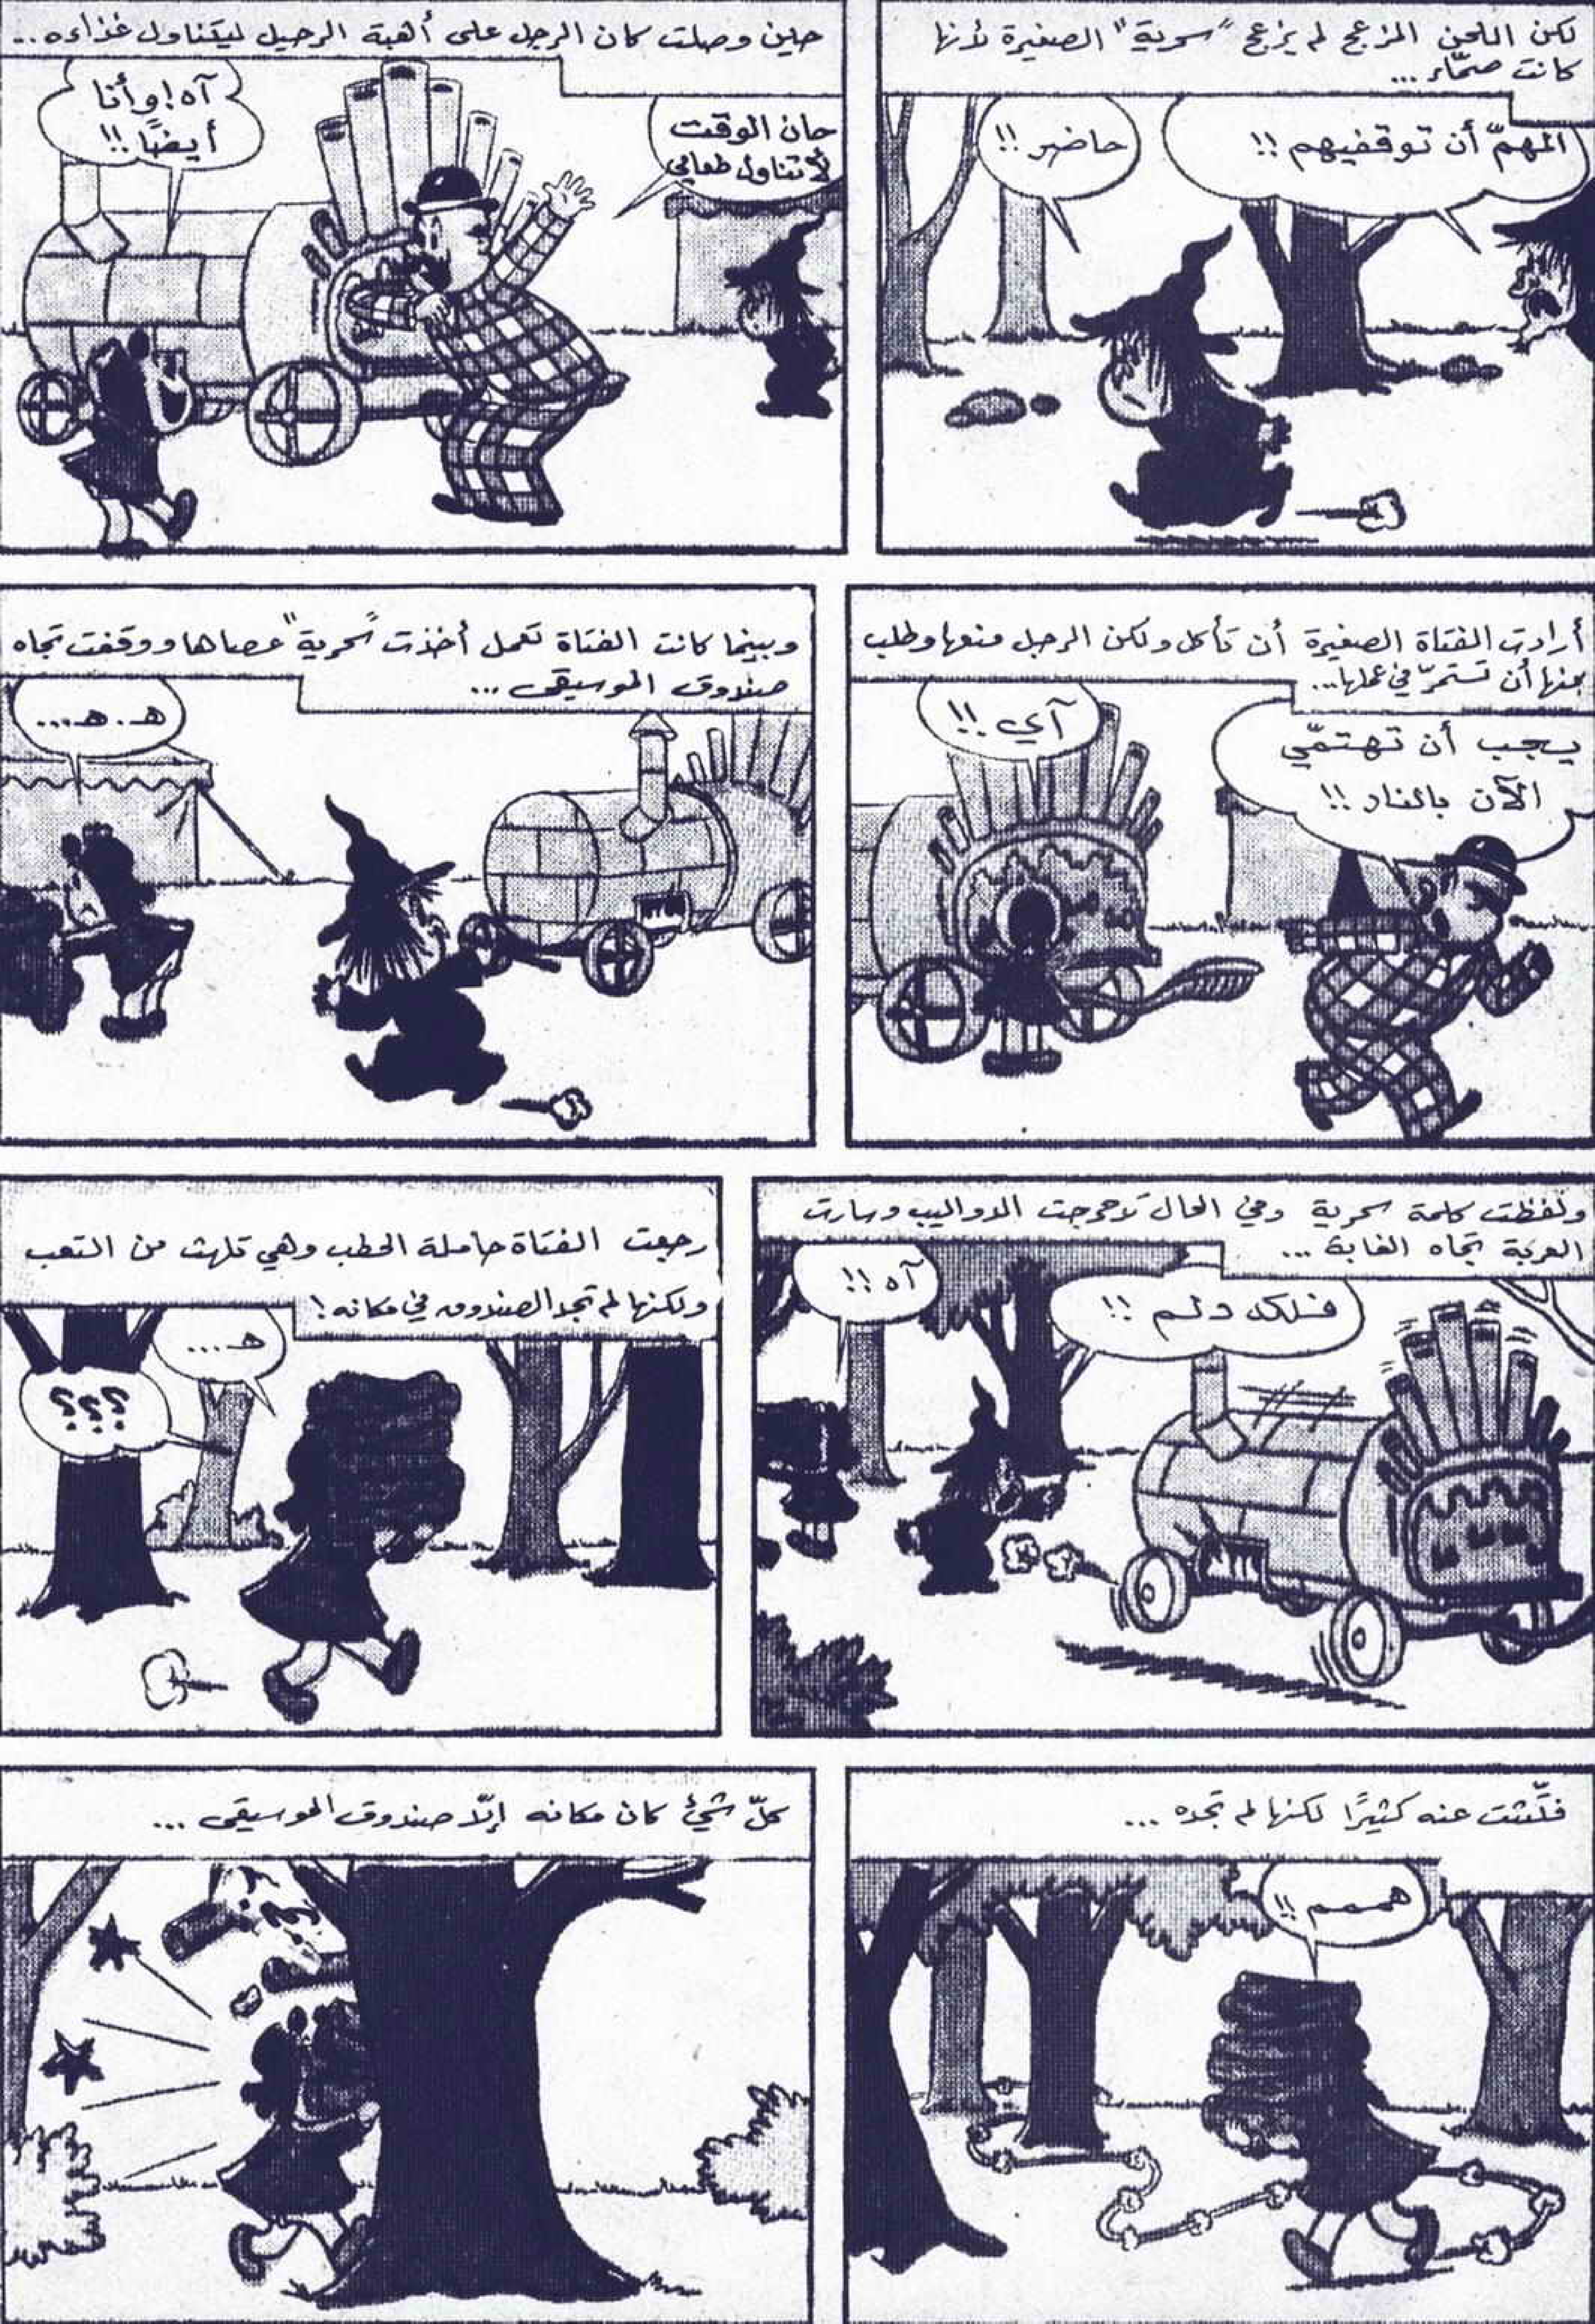 لكن اللحن المزعج لم يزعج "سحرية" الصغيرة لأنها
كانت صمّاء...
المهمّ أن توقفيهم !!
حاضر !!
حين وصلت كان الرجل على أهبة الرحيل ليتناول غذاءه..
حان الوقت
لأتناول طعامي
آه! وأنا
أيضًا !!
أرادت الفتاة الصغيرة أن تأكل ولكن الرجل منعها وطلب
منها أن تستمرّ في عملها...
يجب أن تهتمّي
الآن بالنار !!
آي !!
وبينما كانت الفتاة تعمل أخذت "سحرية" عصاها ووقفت تجاه
صندوق الموسيقى ...
هـ . هـ ...
ولفظت كلمة سحرية وفي الحال تدحرجت الدواليب وسارت
العربة تجاه الغابة ...
فلك دلم !!
آه !!
رجعت الفتاة حاملة الحطب وهي تلهث من التعب
ولكنها لم تجد الصندوق في مكانه !
هـ ...
؟؟؟
فتّشت عنه كثيرًا لكنها لم تجده ...
هممم !!
كلّ شيء كان مكانه إلّا صندوق الموسيقى ...